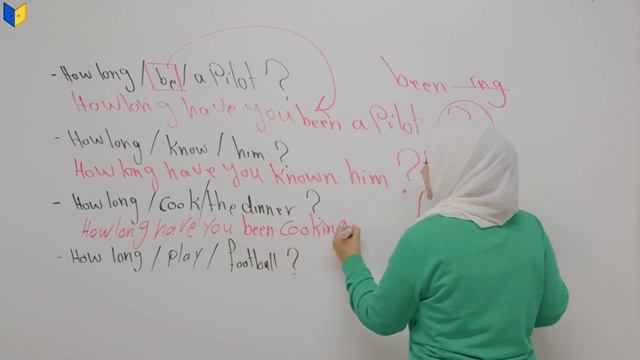 - How long / be / a pilot ?
been ing
How long have you been a pilot ?
- How long / know / him ?
How long have you known him ?
- How long / cook / the dinner ?
How long have you been cooking
- How long / play / football ?